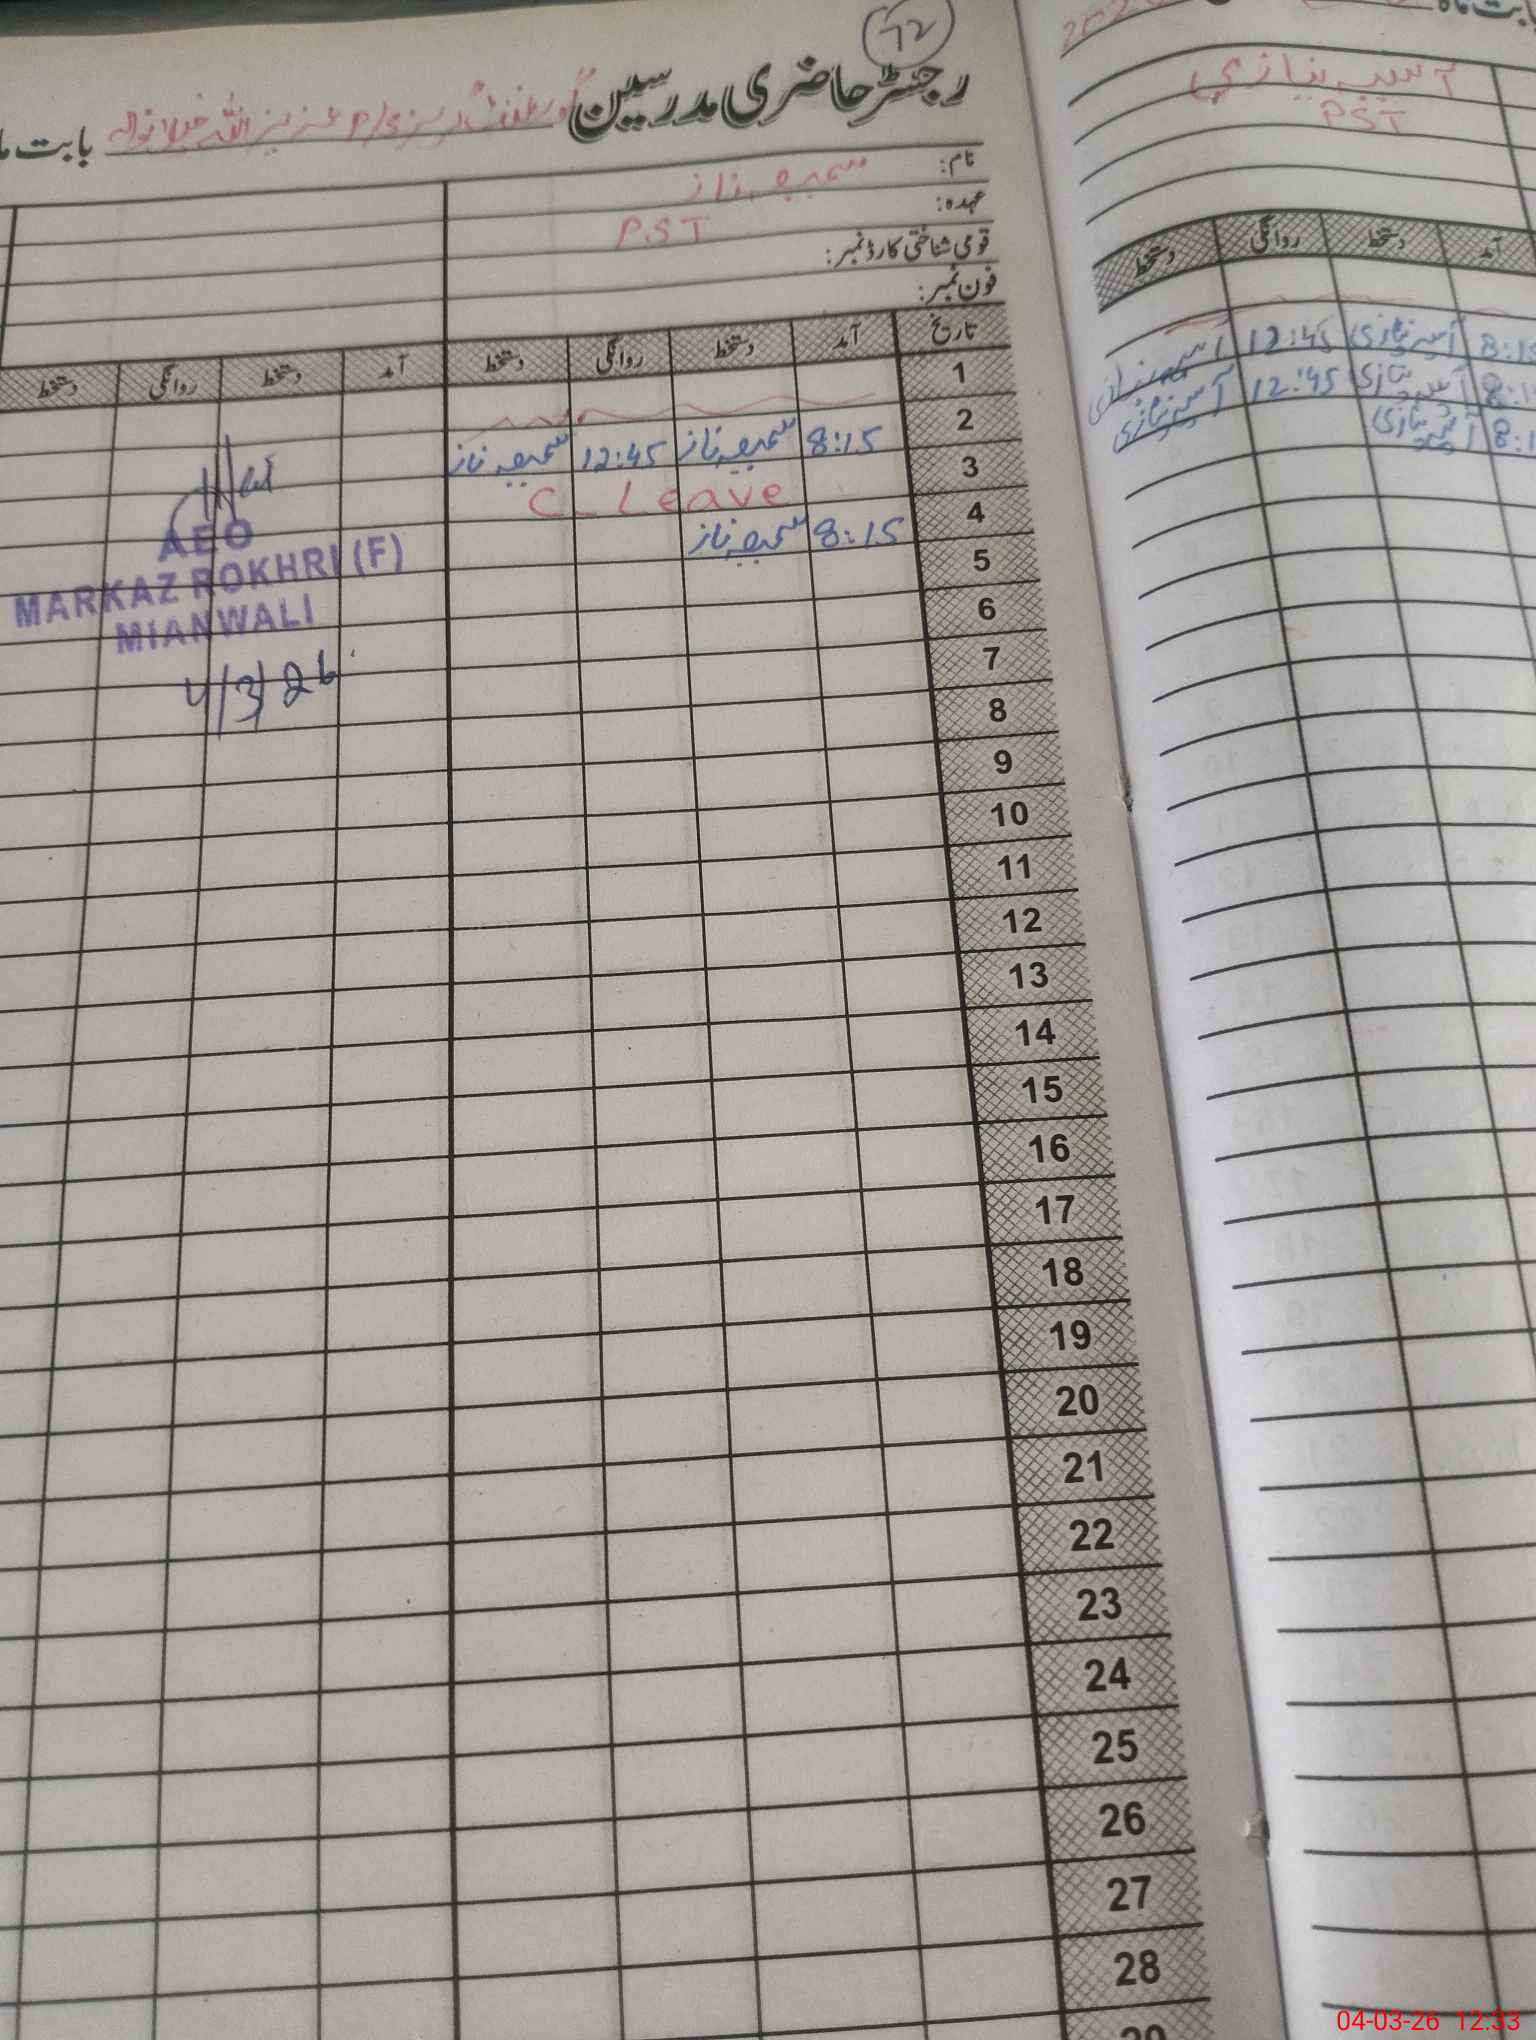 72
رجسٹر حاضری مدرسین
بابت ما
نام: سمیعہ ناز
عہدہ: PST
قومی شناختی کارڈ نمبر:
فون نمبر:
تاریخ آمد دستخط روانگی دستخط آمد دستخط روانگی دستخط
1
2 8:15 سمیعہ ناز 12:45 سمیعہ ناز
3 C_Leave
4 8:15 سمیعہ ناز
5
6
7
8
9
10
11
12
13
14
15
16
17
18
19
20
21
22
23
24
25
26
27
28
29
AEO
MARKAZ ROKHRI (F)
MIANWALI
4/3/26
بابت ماہ
آسیہ نیازی
PST
آمد دستخط روانگی دستخط
آسیہ نیازی 12:45 آسیہ نیازی
آسیہ نیازی 12:45 آسیہ نیازی
آسیہ نیازی
04-03-26 12:33